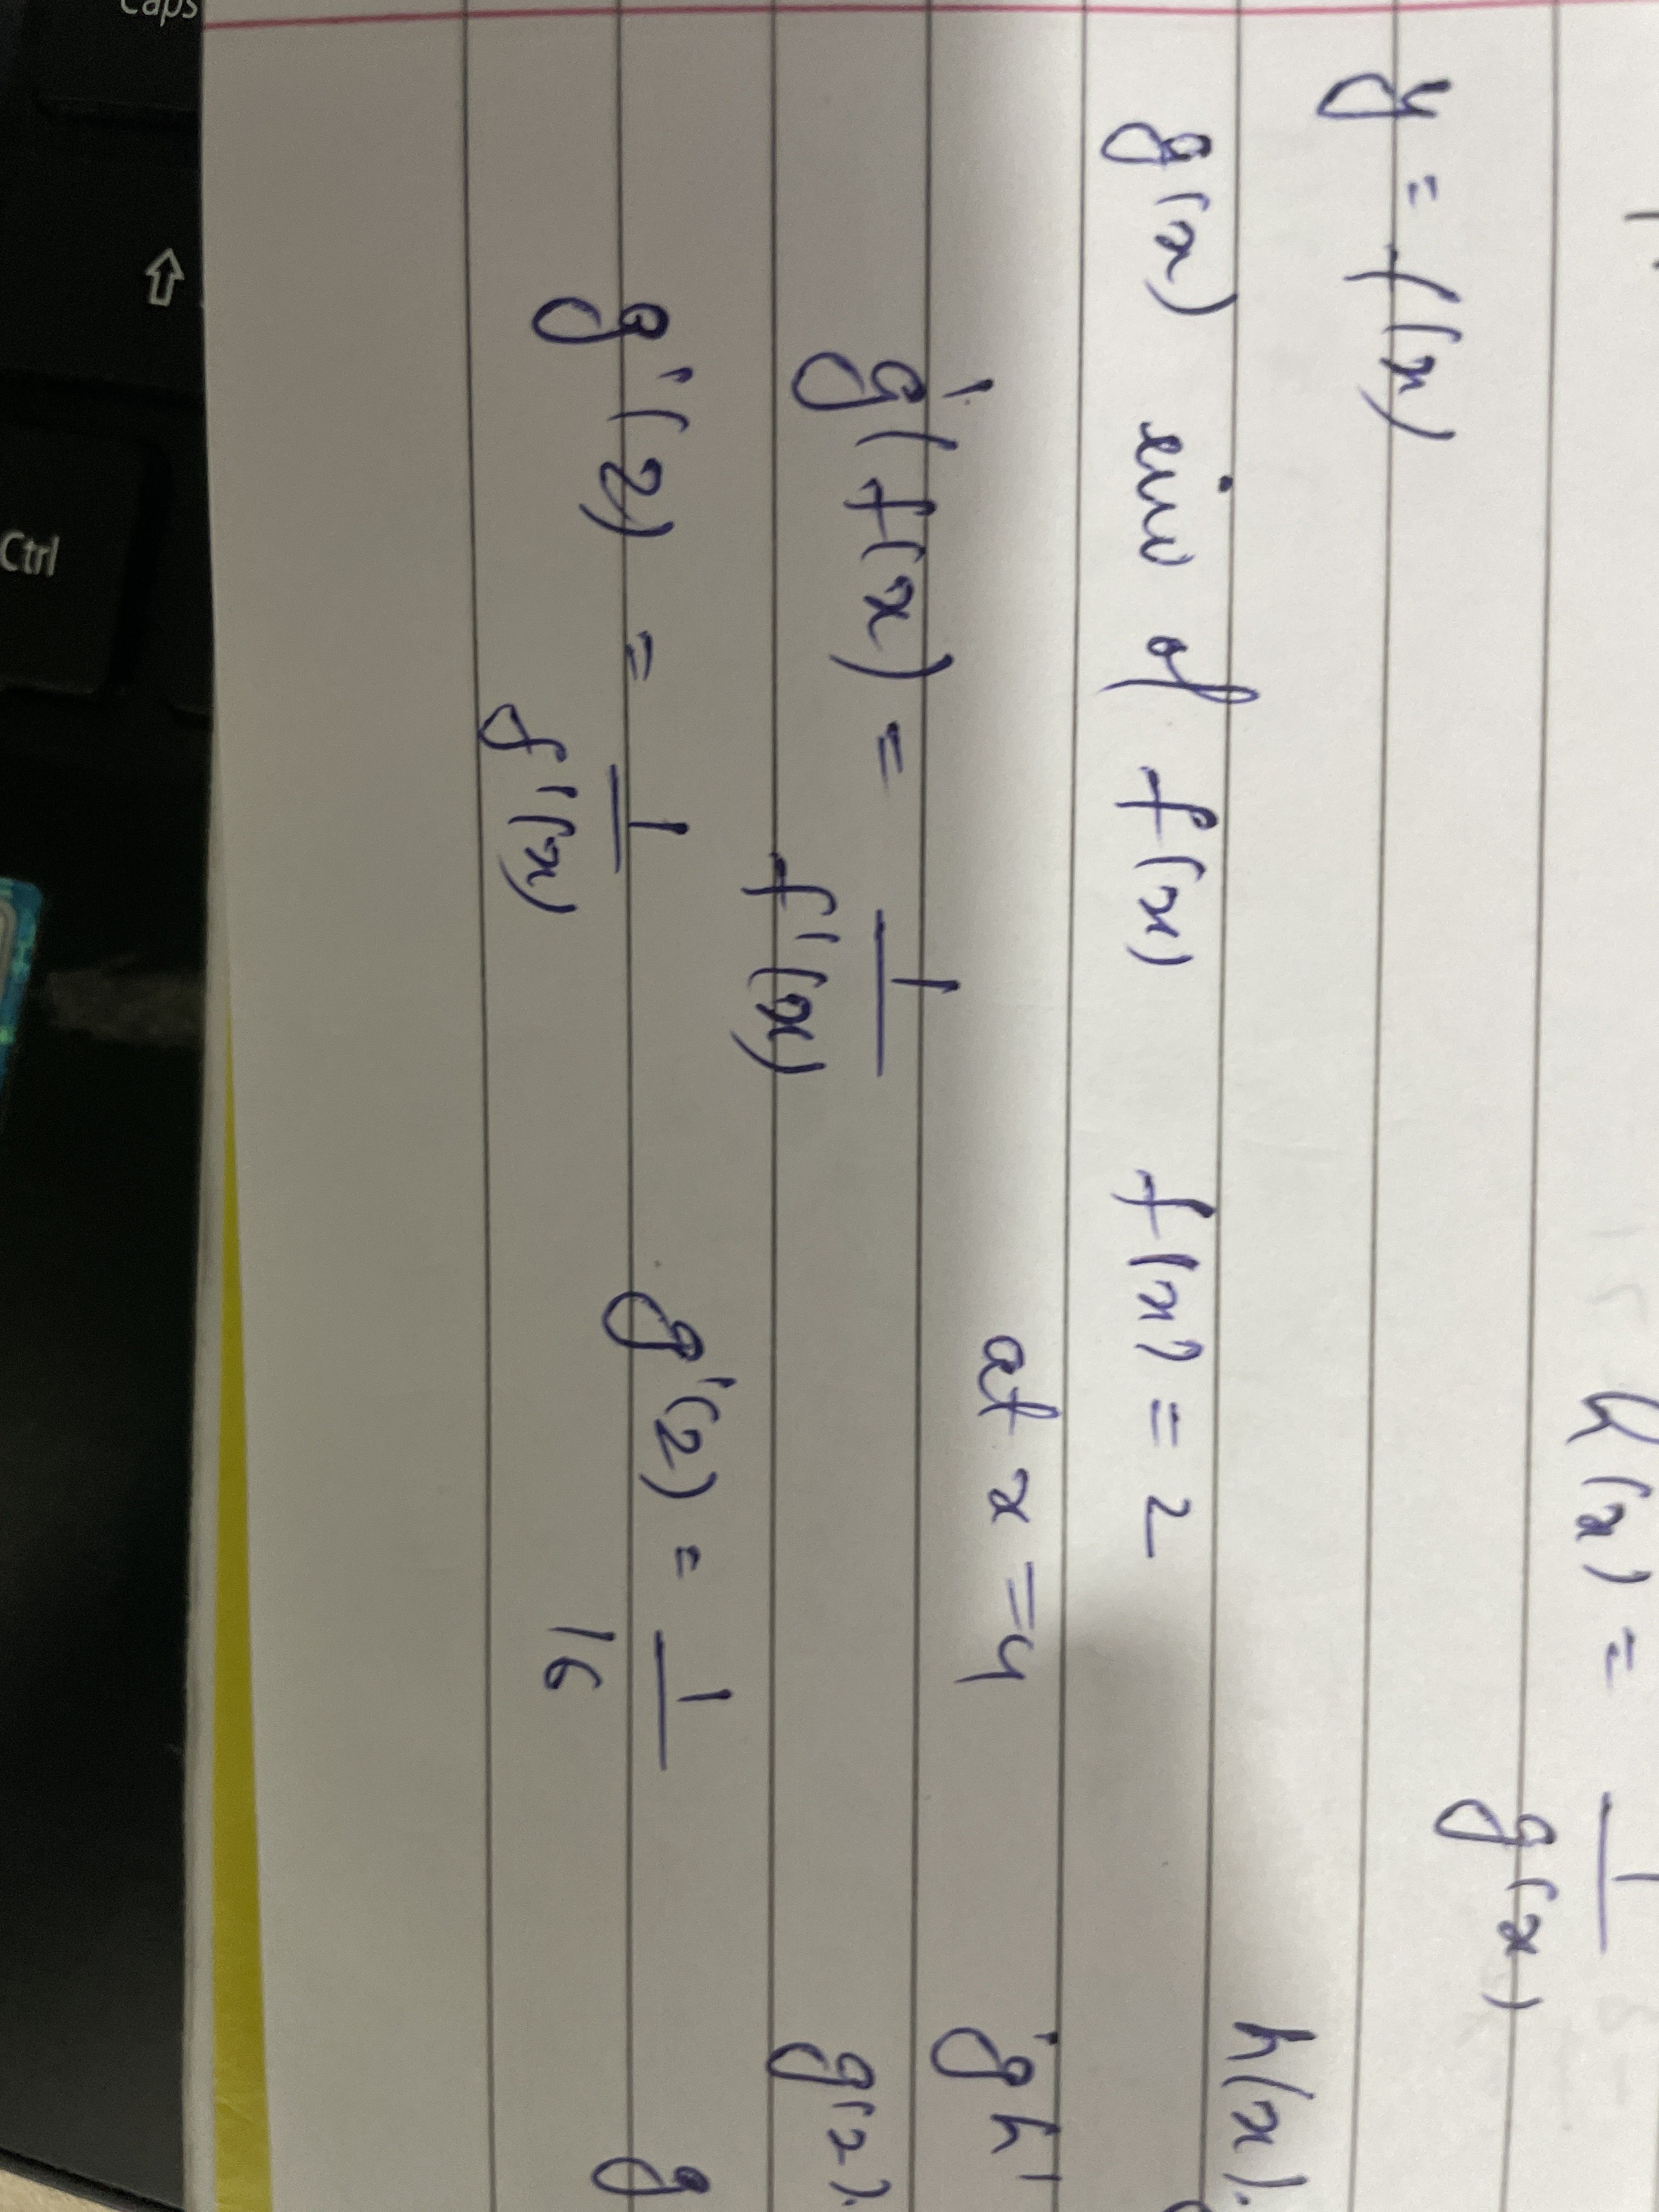 h(x) = 1/g(x)
y = f(x)
h(x).
g(x) inv of f(x) f(x) = 2
at x = 4
g'(f(x) = 1/f'(x)
gh'
g(2).
g'(2) = 1/f'(x) g'(2) = 1/16
g
Caps
Ctrl